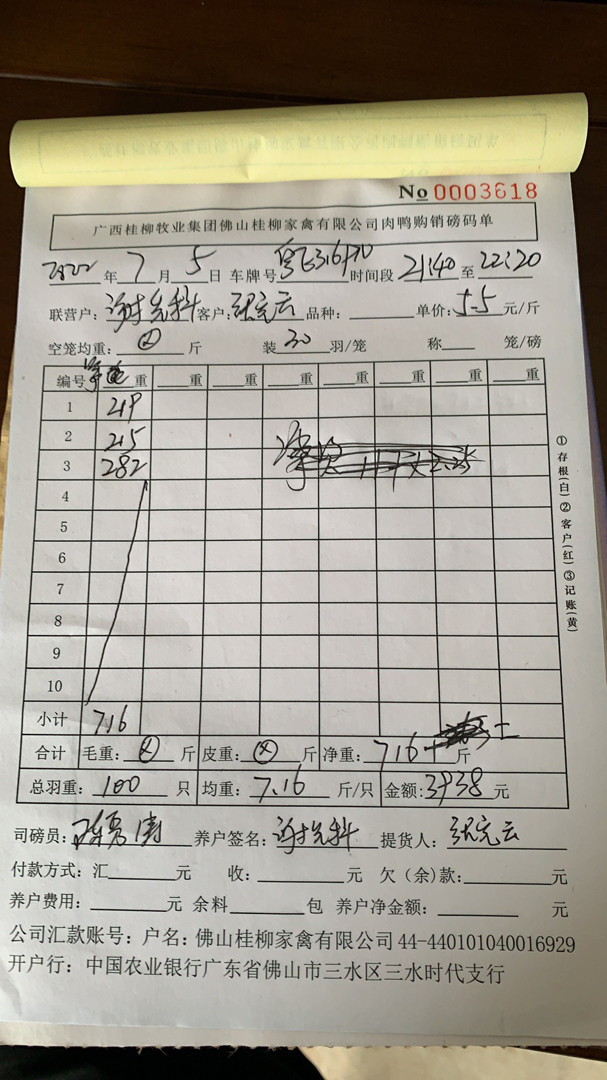 No 0003618
广西桂柳牧业集团佛山桂柳家禽有限公司肉鸭购销磅码单
2022年7月5日 车牌号 时间段 21:40 至 22:20
联营户: 客户: 品种: 单价: 5.5 元/斤
空笼均重: 斤 装 30 羽/笼 称 笼/磅
编号 重 重 重 重 重 重 重 重
1 219
2 215
3 282
4
5
6
7
8
9
10
小计 716
合计 毛重: 斤 皮重: 斤 净重: 716 斤
总羽重: 100 只 均重: 7.16 斤/只 金额: 3938 元
司磅员: 养户签名: 提货人:
付款方式: 汇 元 收: 元 欠(余)款: 元
养户费用: 元 余料 包 养户净金额: 元
公司汇款账号: 户名: 佛山桂柳家禽有限公司 44-440101040016929
开户行: 中国农业银行广东省佛山市三水区三水时代支行
①存根(白)②客户(红)③记账(黄)